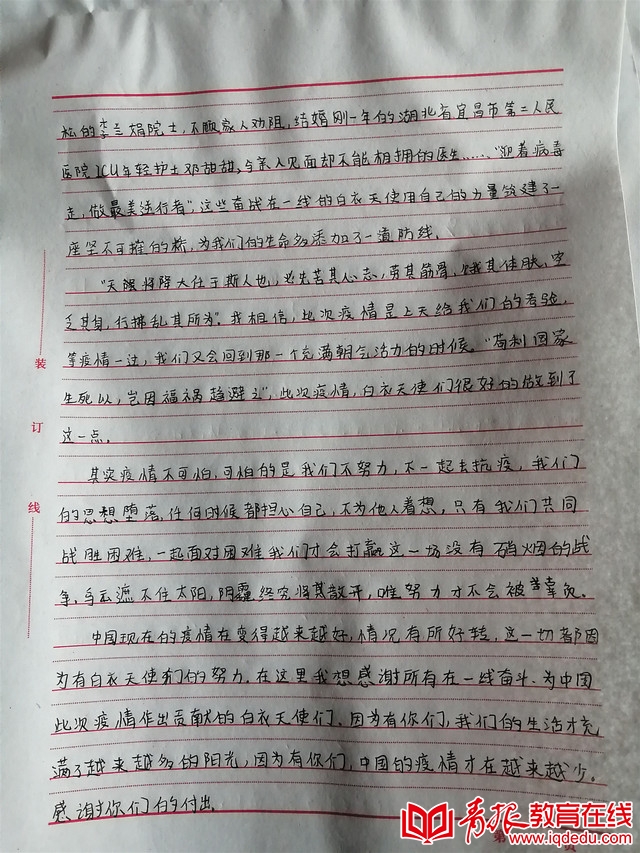 松的李兰娟院士，不顾家人劝阻，结婚刚一年的湖北省宜昌市第二人民
医院ICU年轻护士邓甜甜，与亲人见面却不能相拥的医生……“迎着病毒
走，做最美逆行者”，这些奋战在一线的白衣天使用自己的力量筑建了一
座坚不可摧的桥，为我们的生命多添加了一道防线。
“天将降大任于斯人也，必先苦其心志，劳其筋骨，饿其体肤，空
乏其身，行拂乱其所为”。我相信，此次疫情是上天给我们的考验，
等疫情一过，我们又会回到那一个充满朝气活力的时候。“苟利国家
生死以，岂因福祸趋避之”，此次疫情，白衣天使们很好的做到了
这一点。
其实疫情不可怕，可怕的是我们不努力，不一起去抗疫，我们
的思想堕落，任何时候都担心自己，不为他人着想，只有我们共同
战胜困难，一起面对困难我们才会打赢这一场没有硝烟的战
争，乌云遮不住太阳，阴霾终究将其散开，唯努力才不会被辜负。
中国现在的疫情在变得越来越好，情况有所好转，这一切都因
为有白衣天使们的努力。在这里我想感谢所有在一线奋斗，为中国
此次疫情作出贡献的白衣天使们，因为有你们，我们的生活才充
满了越来越多的阳光，因为有你们，中国的疫情才在越来越少。
感谢你们的付出。
装
订
线
第
页
青报教育在线
www.iqdedu.com